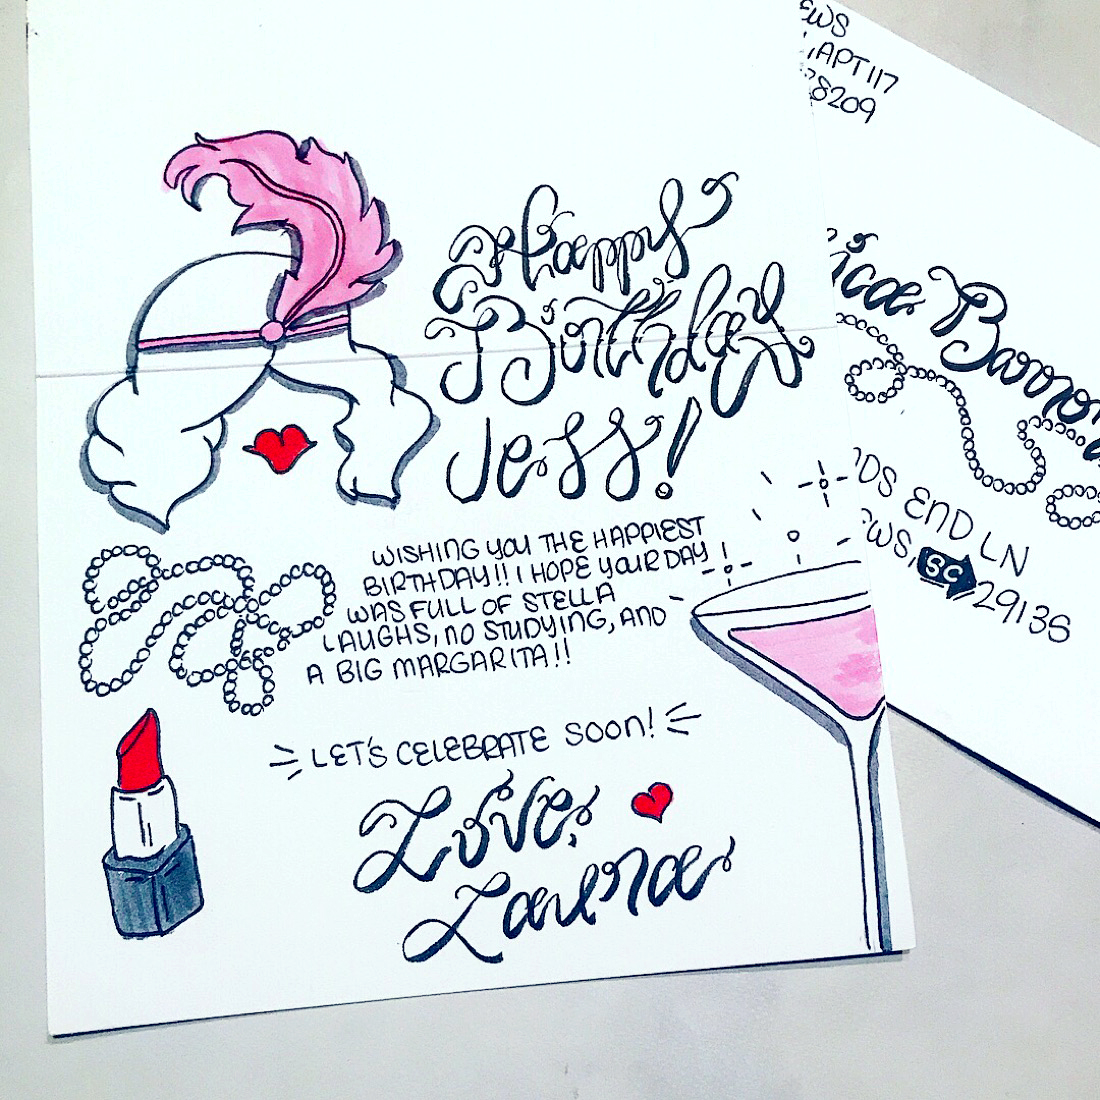 Happy
Birthday
Jess!
WISHING YOU THE HAPPIEST
BIRTHDAY!! I HOPE YOUR DAY
WAS FULL OF STELLA
LAUGHS, NO STUDYING, AND
A BIG MARGARITA!!
LET'S CELEBRATE SOON!
Love,
Laura
APT 117
8209
END LN
SC 29135